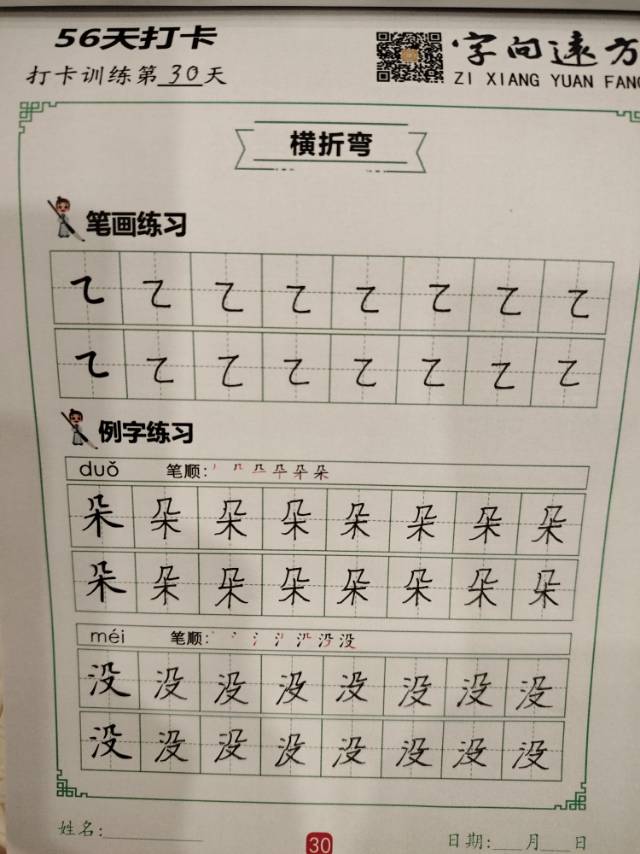 56天打卡
打卡训练第30天
字向远方
ZI XIANG YUAN FANG
横折弯
笔画练习
㇍ ㇍ ㇍ ㇍ ㇍ ㇍ ㇍ ㇍
㇍ ㇍ ㇍ ㇍ ㇍ ㇍ ㇍ ㇍
例字练习
duǒ 笔顺:
朵 朵 朵 朵 朵 朵 朵 朵
朵 朵 朵 朵 朵 朵 朵 朵
méi 笔顺:
没 没 没 没 没 没 没 没
没 没 没 没 没 没 没 没
姓名:
30
日期: 月 日